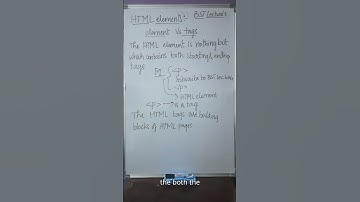 HTML elements:- BST Lectures
element Vs tags
The HTML element is nothing but
which contains both starting & ending
tags
Eg <p>
Subscribe to BST Lectures
<p>
→ HTML element
<p> → is a tag
The HTML tags are building
blocks of HTML pages
the both the